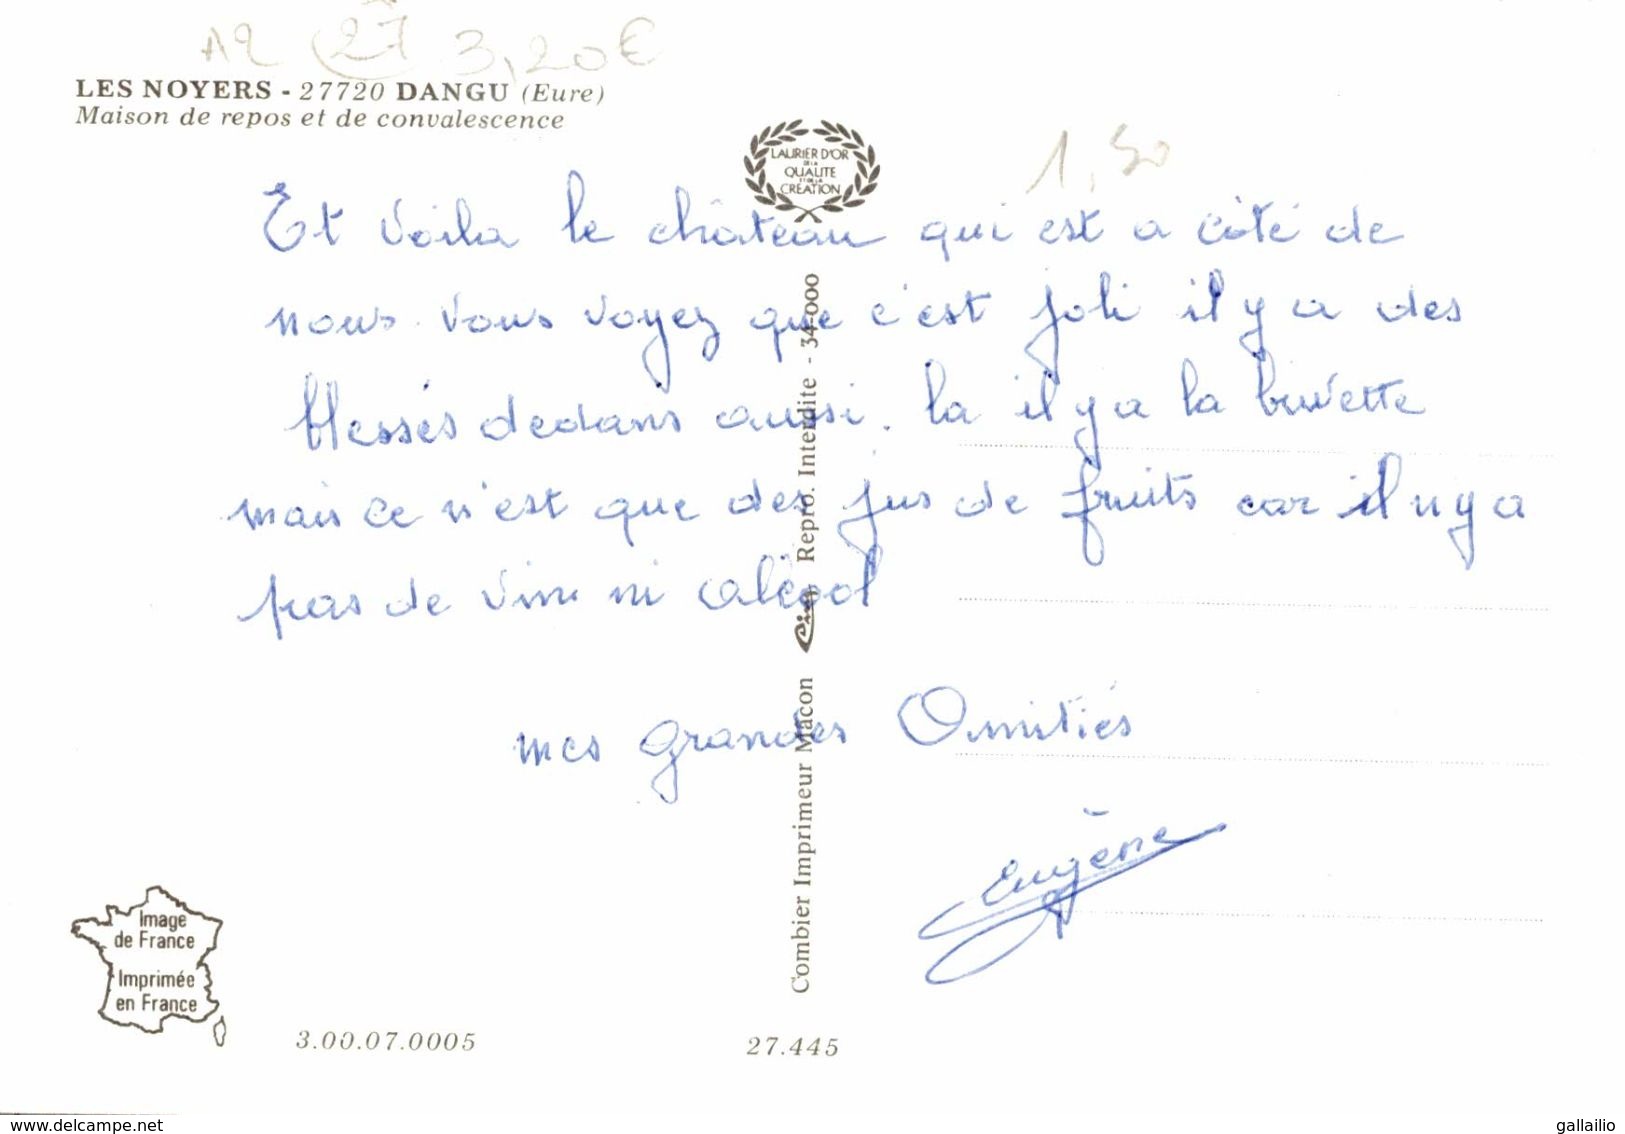 A2 (27 3,20€
LES NOYERS - 27720 DANGU (Eure)
Maison de repos et de convalescence
LAURIER D'OR
DE LA
QUALITE
ET DE LA
CREATION
1,50
Et voila le château qui est a côté de
nous. vous voyez que c'est joli il y a des
blessés dedans aussi. la il y a la buvette
mais ce n'est que des jus de fruits car il n y a
pas de vin ni alcool
mes Grandes Amitiés
Eugène
Combier Imprimeur Mâcon Cim Repro. Interdite - 34-000
Image
de France
Imprimée
en France
3.00.07.0005
27.445
www.delcampe.net
gallailio